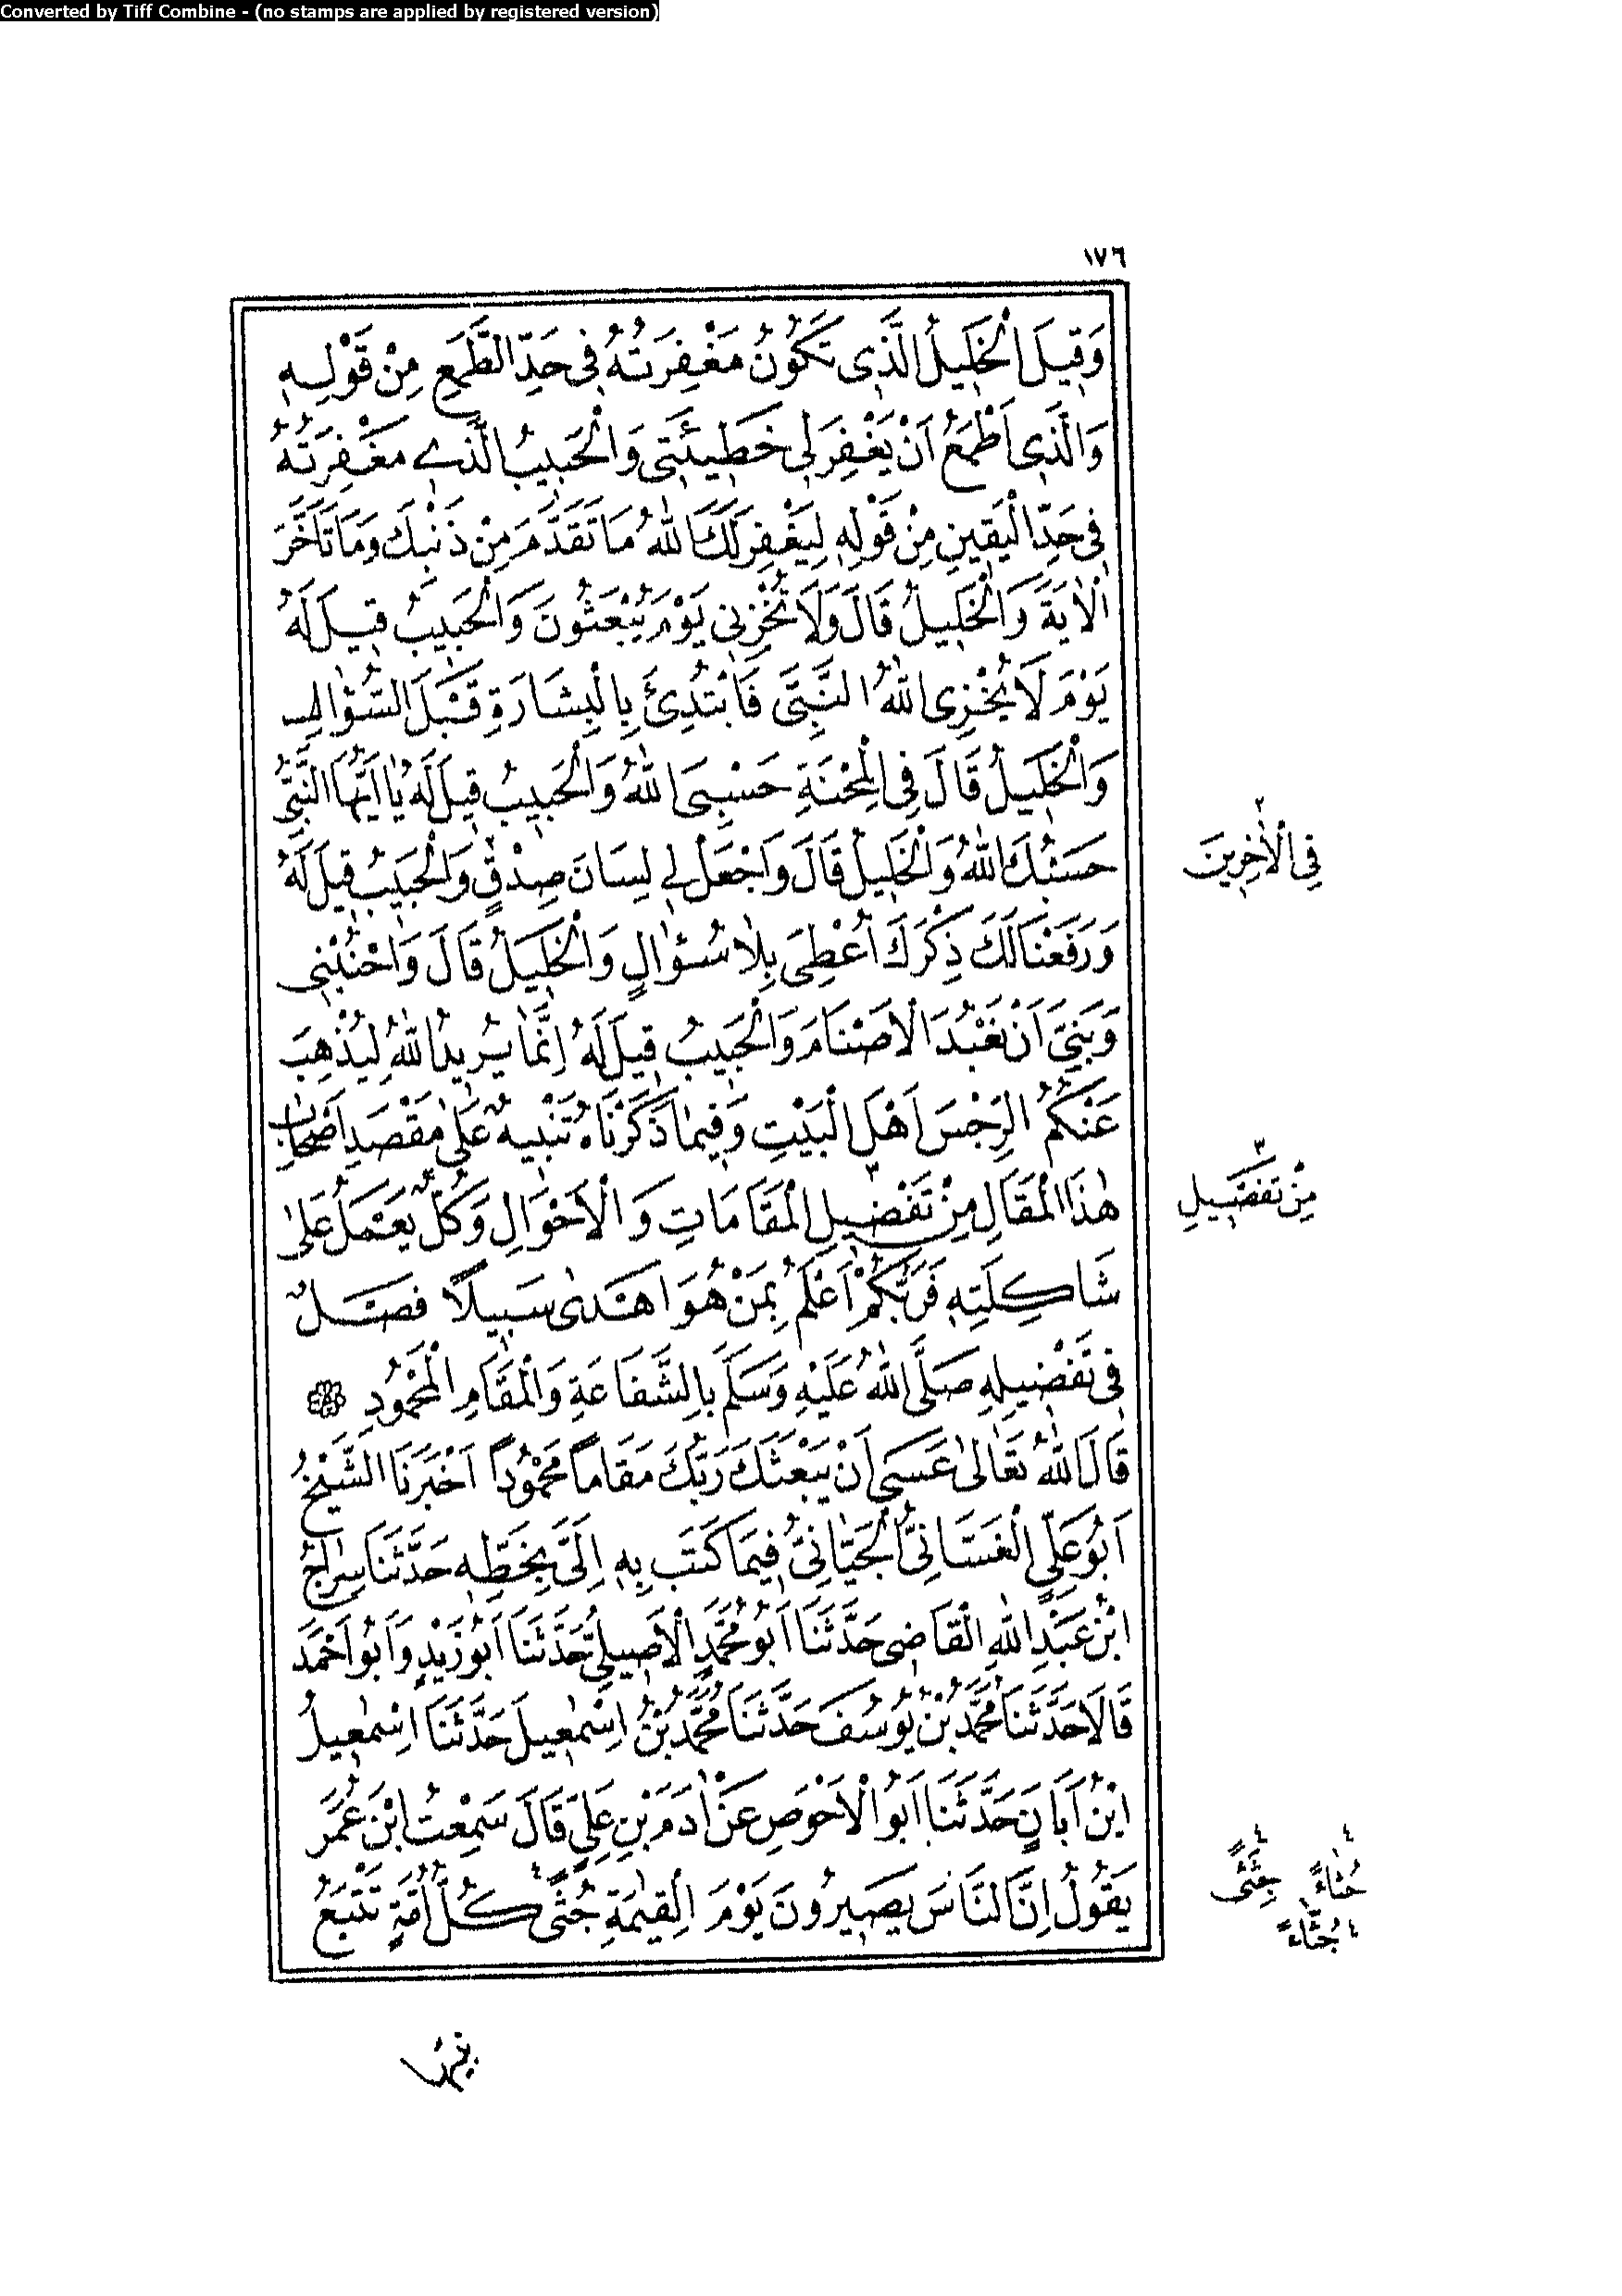 Converted by Tiff Combine - (no stamps are applied by registered version)
١٧٦
وَقِيلَ الْخَلِيلُ الَّذِى تَكُونُ مَغْفِرَتُهُ فِى حَدِّ الطَّمَعِ مِنْ قَوْلِهِ
وَالَّذِى اَطْمَعُ اَنْ يَغْفِرَ لِى خَطِيئَتِى وَالْحَبِيبُ الَّذِى مَغْفِرَتُهُ
فِى حَدِّ الْيَقِينِ مِنْ قَوْلِهِ لِيَغْفِرَ لَكَ اللهُ مَا تَقَدَّمَ مِنْ ذَنْبِكَ وَمَا تَاَخَّرَ
اْلآيَةَ وَالْخَلِيلُ قَالَ وَلاَ تُخْزِنِى يَوْمَ يُبْعَثُونَ وَالْحَبِيبُ قِيلَ لَهُ
يَوْمَ لاَ يُخْزِى اللهُ النَّبِىَّ فَابْتُدِئَ بِالْبِشَارَةِ قَبْلَ السُّؤَالِ
وَالْخَلِيلُ قَالَ فِى الْمِحْنَةِ حَسْبِىَ اللهُ وَالْحَبِيبُ قِيلَ لَهُ يَا اَيُّهَا النَّبِىُّ
حَسْبُكَ اللهُ وَالْخَلِيلُ قَالَ وَاجْعَلْ لِى لِسَانَ صِدْقٍ وَالْحَبِيبُ قِيلَ لَهُ
فِى اْلآخِرِينَ
وَرَفَعْنَا لَكَ ذِكْرَكَ اُعْطِىَ بِلاَ سُؤَالٍ وَالْخَلِيلُ قَالَ وَاجْنُبْنِى
وَبَنِىَّ اَنْ نَعْبُدَ اْلاَصْنَامَ وَالْحَبِيبُ قِيلَ لَهُ اِنَّمَا يُرِيدُ اللهُ لِيُذْهِبَ
عَنْكُمُ الرِّجْسَ اَهْلَ الْبَيْتِ وَفِيمَا ذَكَرْنَاهُ تَنْبِيهٌ عَلَى مَقْصَدِ اَصْحَابِ
هٰذَا الْمَقَالِ مِنْ تَفْضِيلِ الْمَقَامَاتِ وَاْلاَحْوَالِ وَكُلٌّ يَعْمَلُ عَلَى
مِنْ تَفْضِيلِ
شَاكِلَتِهِ فَرَبُّكُمْ اَعْلَمُ بِمَنْ هُوَ اَهْدَى سَبِيلاً فَصْلٌ
فِى تَفْضِيلِهِ صَلَّى اللهُ عَلَيْهِ وَسَلَّمَ بِالشَّفَاعَةِ وَالْمَقَامِ الْمَحْمُودِ
قَالَ اللهُ تَعَالَى عَسَى اَنْ يَبْعَثَكَ رَبُّكَ مَقَاماً مَحْمُوداً اَخْبَرَنَا الشَّيْخُ
اَبُو عَلِىٍّ الْغَسَّانِىُّ الْجَيَّانِىُّ فِيمَا كَتَبَ بِهِ اِلَىَّ بِخَطِّهِ حَدَّثَنَا سِرَاجُ
ابْنُ عَبْدِ اللهِ الْقَاضِى حَدَّثَنَا اَبُو مُحَمَّدٍ اْلاَصِيلِىُّ حَدَّثَنَا اَبُو زَيْدٍ وَاَبُو اَحْمَدَ
قَالاَ حَدَّثَنَا مُحَمَّدُ بْنُ يُوسُفَ حَدَّثَنَا مُحَمَّدُ بْنُ اِسْمٰعِيلَ حَدَّثَنَا اِسْمٰعِيلُ
ابْنُ اَبَانٍ حَدَّثَنَا اَبُو اْلاَحْوَصِ عَنْ اٰدَمَ بْنِ عَلِىٍّ قَالَ سَمِعْتُ ابْنَ عُمَرَ
يَقُولُ اِنَّ النَّاسَ يَصِيرُونَ يَوْمَ الْقِيٰمَةِ جُثًى كُلُّ اُمَّةٍ تَتْبَعُ
جُثَاءً جِثًى
جُثَّاءً
نبيها